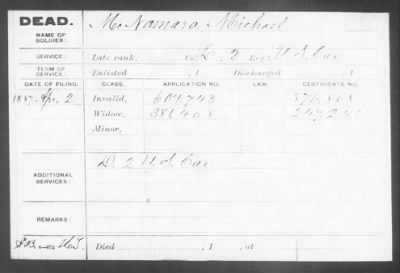 DEAD.
NAME OF SOLDIER: McNamara, Michael
SERVICE: Late rank, Co. D, 2 Reg't U.S. Cav
TERM OF SERVICE: Enlisted , 1 Discharged , 1
DATE OF FILING. CLASS. APPLICATION NO. LAW. CERTIFICATE NO.
1887 Apr. 2 Invalid, 604743 376868
Widow, 386408
Minor,
ADDITIONAL SERVICES: D. 2 U.S. Cav.
REMARKS:
Died , 1 , at